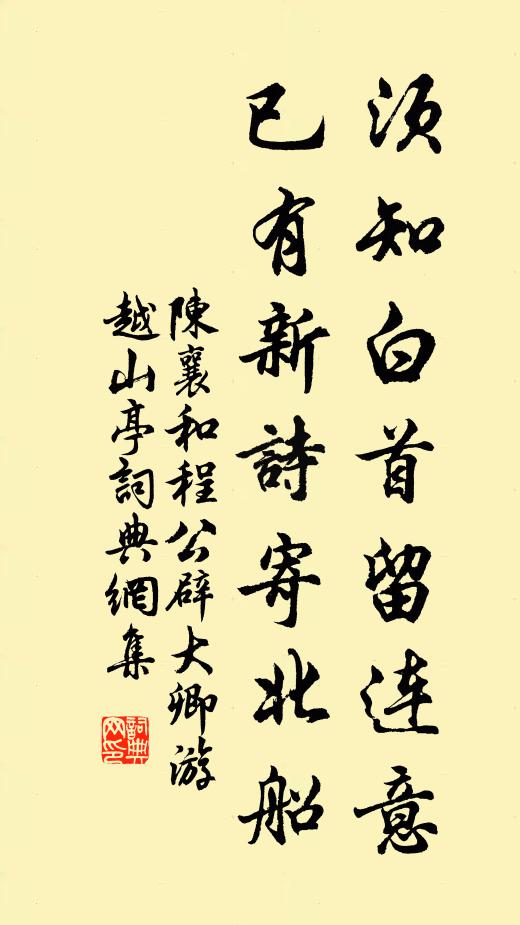 须知白首留连意
已有新詩寄北船
陳襄和程公辟大卿游
越山亭詞典網集
詞典
网印